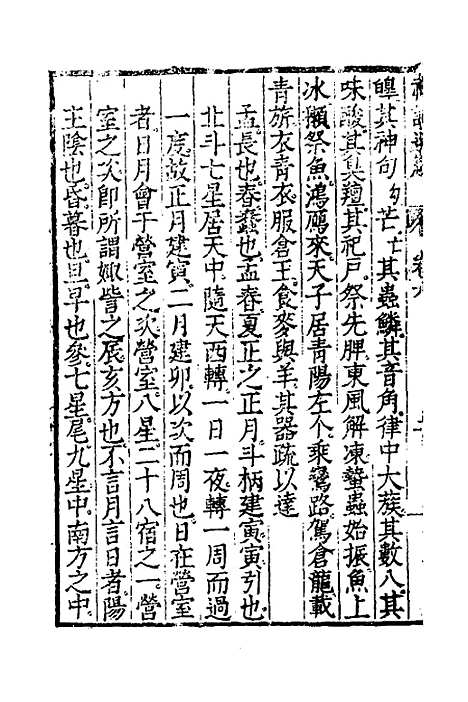 皥其神句芒其蟲鱗其音角律中大蔟其數八其
味酸其臭羶其祀戸祭先脾東風解凍蟄蟲始振魚上
冰獺祭魚鴻鴈來天子居青陽左个乘鸞路駕倉龍載
青旂衣青衣服倉玉食麥與羊其器疏以達
孟長也春蠢也孟春夏正之正月斗柄建寅寅引也
北斗七星居天中隨天西轉一日一夜轉一周而過
一度故正月建寅二月建卯以次而周也日在營室
者日月會于營室之次營室八星二十八宿之一營
室之次即所謂娵訾之辰亥方也不言月言日者陽
主陰也昏暮也旦早也參七星尾九星中南方之中